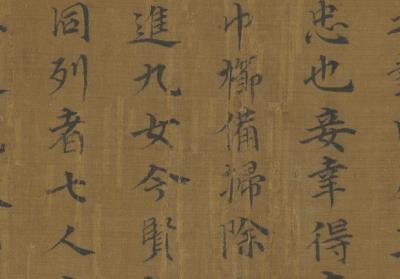 忠也妾幸得
巾櫛備掃除
進九女今賢
同列者七人